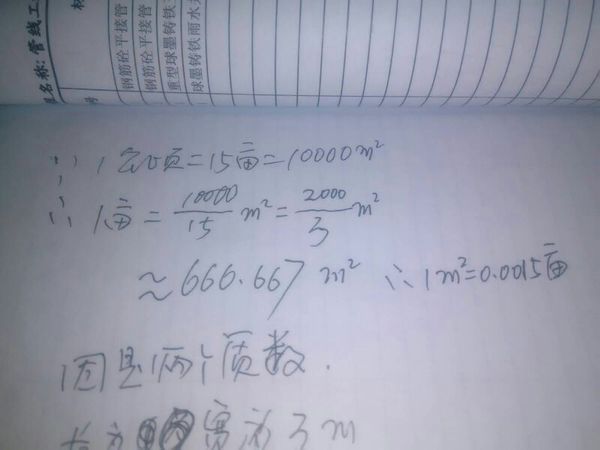 名称:管线工
材
号
钢筋砼平接管
钢筋砼平接管
重型球墨铸铁
球墨铸铁雨水
∵1公顷=15亩=10000m²
∴1亩=10000/15 m²=2000/3 m²
≈666.667 m² ∴1m²=0.0015亩
因是两个质数.
长为 宽为3m